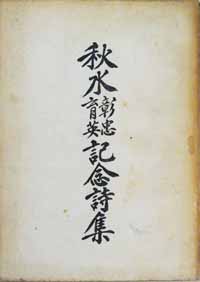 秋水彰忠育英記念詩集